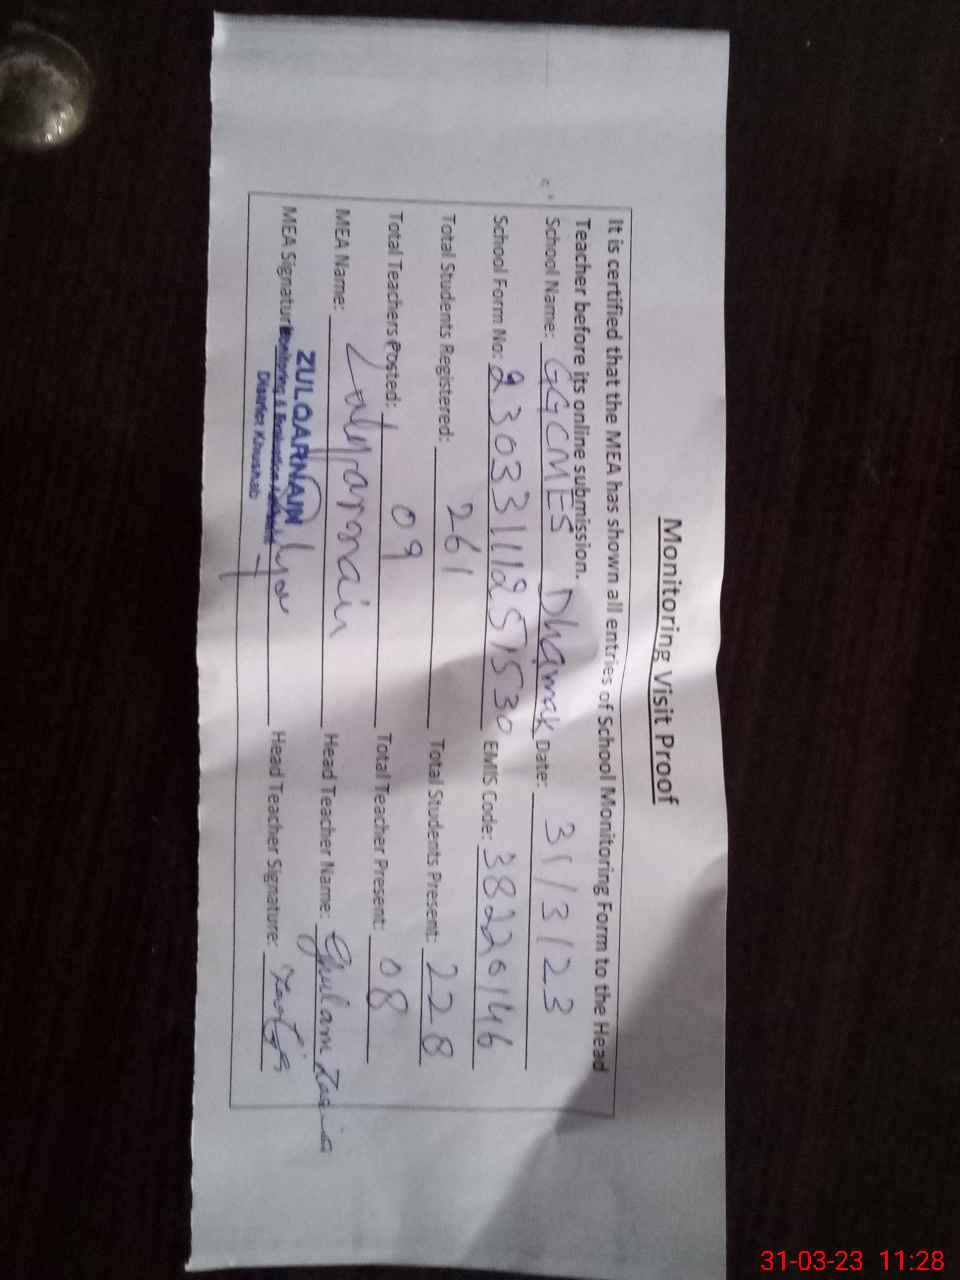 Monitoring Visit Proof
It is certified that the MEA has shown all entries of School Monitoring Form to the Head
Teacher before its online submission.
School Name: GGCMES Dhamak Date: 31/3/23
School Form No: EMIS Code: 38220146
Total Students Registered: 261 Total Students Present: 228
Total Teachers Posted: 09 Total Teacher Present: 08
MEA Name: Zulqarnain Head Teacher Name: Ghulam
MEA Signature Head Teacher Signature:
ZULQARNAIN
Monitoring & Evaluation
District Khushab
31-03-23 11:28